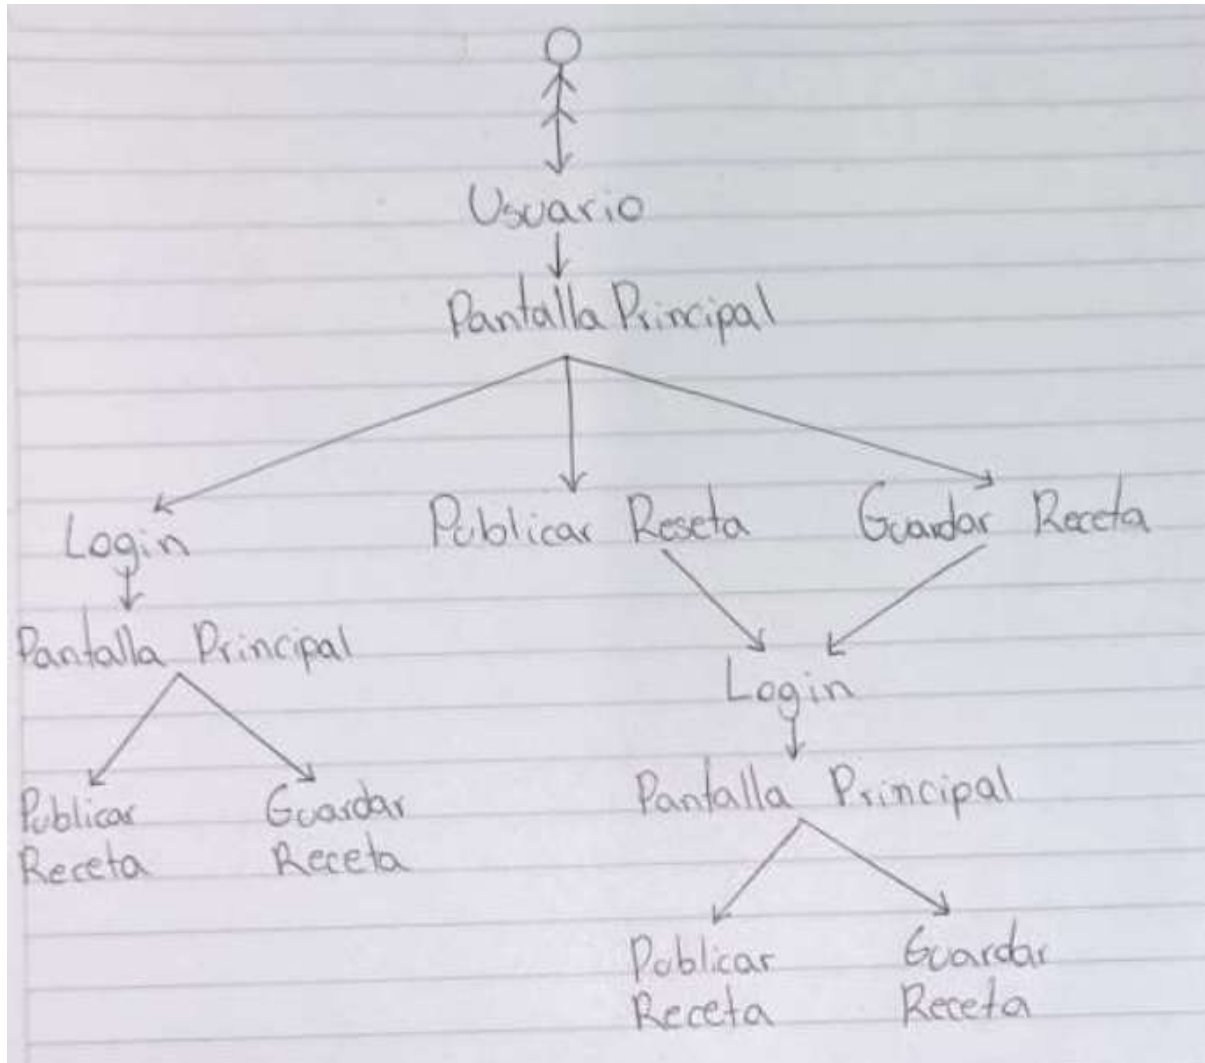 Usuario
Pantalla Principal
Login
Publicar Reseta
Guardar Receta
Pantalla Principal
Login
Publicar
Receta
Guardar
Receta
Pantalla Principal
Publicar
Receta
Guardar
Receta